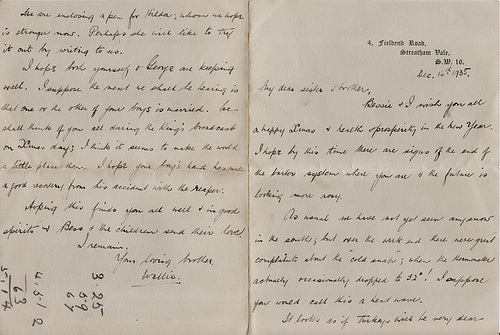 4, Fieldend Road,
Streatham Vale,
S.W. 16.
Dec. 16th, 1935,
My dear sister & brother,
Bessie & I wish you all
a happy Xmas & health & prosperity in the new Year.
I hope by this time there are signs of the end of
the barter system where you are & the future is
looking more rosy.
As usual we have not yet seen any snow
in the south; but over the week end there were great
complaints about the cold snap; when the thermometer
actually occasionally dropped to 32°! I suppose
you would call this a heat wave.
It looks as if turkeys will be very dear
We are enclosing a pen for Hilda; whom we hope
is stronger now. Perhaps she will like to try
it out by writing to us.
I hope both yourself & George are keeping
well. I suppose the next we shall be hearing is
that one or the other of your boys is married. We
shall think of you all during the King's broadcast
on Xmas day; I think it seems to make the world
a little place then. I hope your boy's hand has made
a good recovery from his accident with the reaper.
Hoping this finds you all well & in good
spirits & Bess & the children send their love,
I remain,
Your loving brother
Wallis.
3.25
59
67
4.5-1 2
63